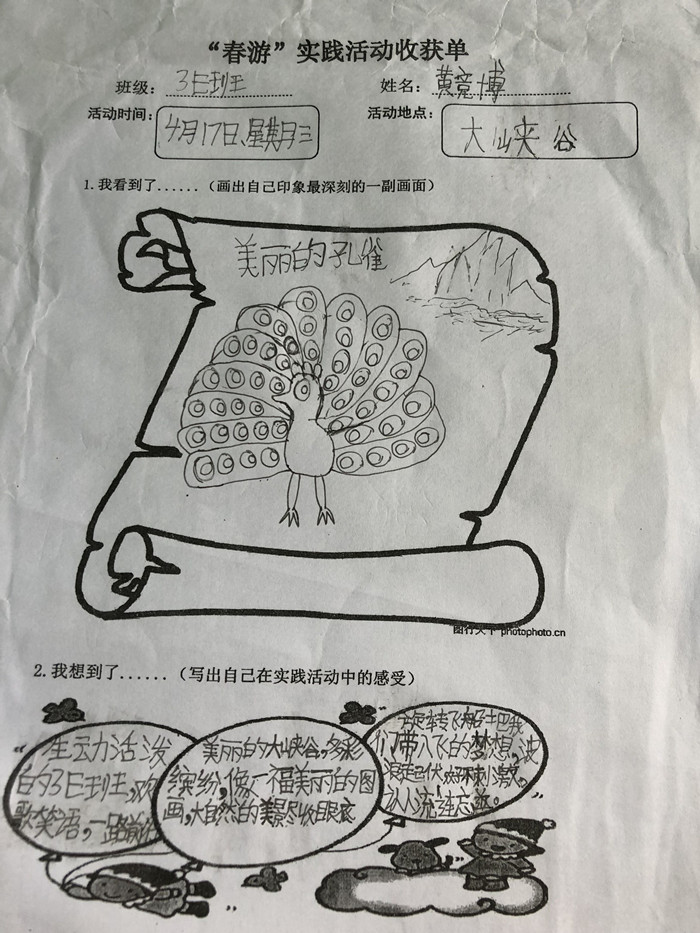 “春游”实践活动收获单
班级：3E班 姓名：黄竟博
活动时间：4月17日、星期三 活动地点：大峡谷
1.我看到了......（画出自己印象最深刻的一副画面）
美丽的孔雀
图行天下 photophoto.cn
2.我想到了......（写出自己在实践活动中的感受）
生动活泼
的3E班,欢
歌笑语,一路前
美丽的大峡谷,多彩
缤纷,像一福美丽的图
画,大自然的美景尽收眼底
旋转飞船把我
们带入飞的梦想,波
浪起伏,刺激,
流连忘返。”